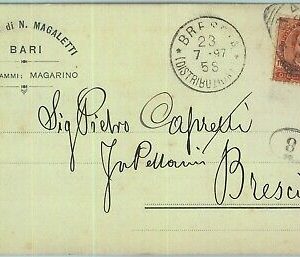 di N. MAGALETTI
BARI
AMMI: MAGARINO
BRESCIA
23
7-97
5S
(DISTRIBUZIONE
Sig Pietro Capretti
Brescia
8